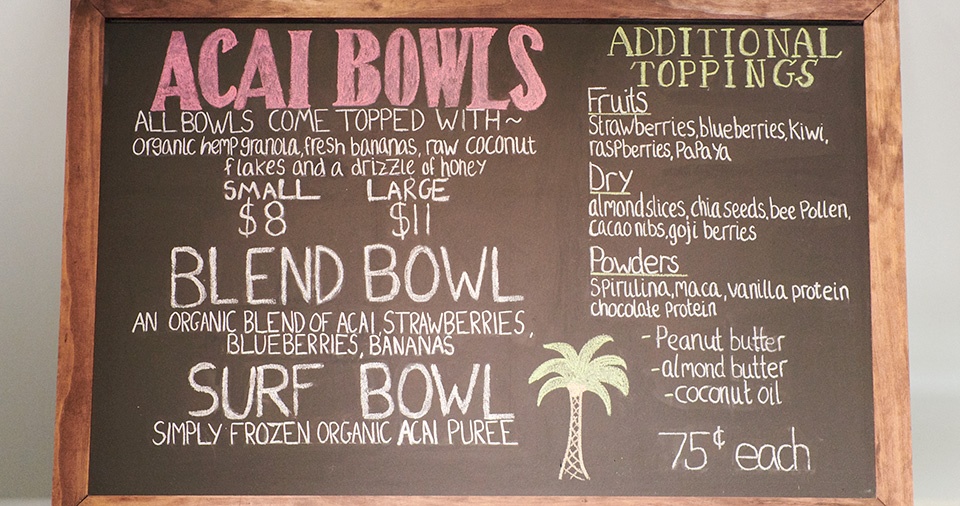 ACAI BOWLS
ALL BOWLS COME TOPPED WITH~
organic hemp granola, fresh bananas, raw coconut
flakes and a drizzle of honey
SMALL LARGE
$8 $11
BLEND BOWL
AN ORGANIC BLEND OF ACAI, STRAWBERRIES,
BLUEBERRIES, BANANAS
SURF BOWL
SIMPLY FROZEN ORGANIC ACAI PUREE
ADDITIONAL
TOPPINGS
Fruits
Strawberries, blueberries, Kiwi,
raspberries, Papaya
Dry
almond slices, chia seeds, bee Pollen,
cacao nibs, goji berries
Powders
Spirulina, maca, vanilla protein
chocolate protein
-Peanut butter
-almond butter
-coconut oil
75¢ each